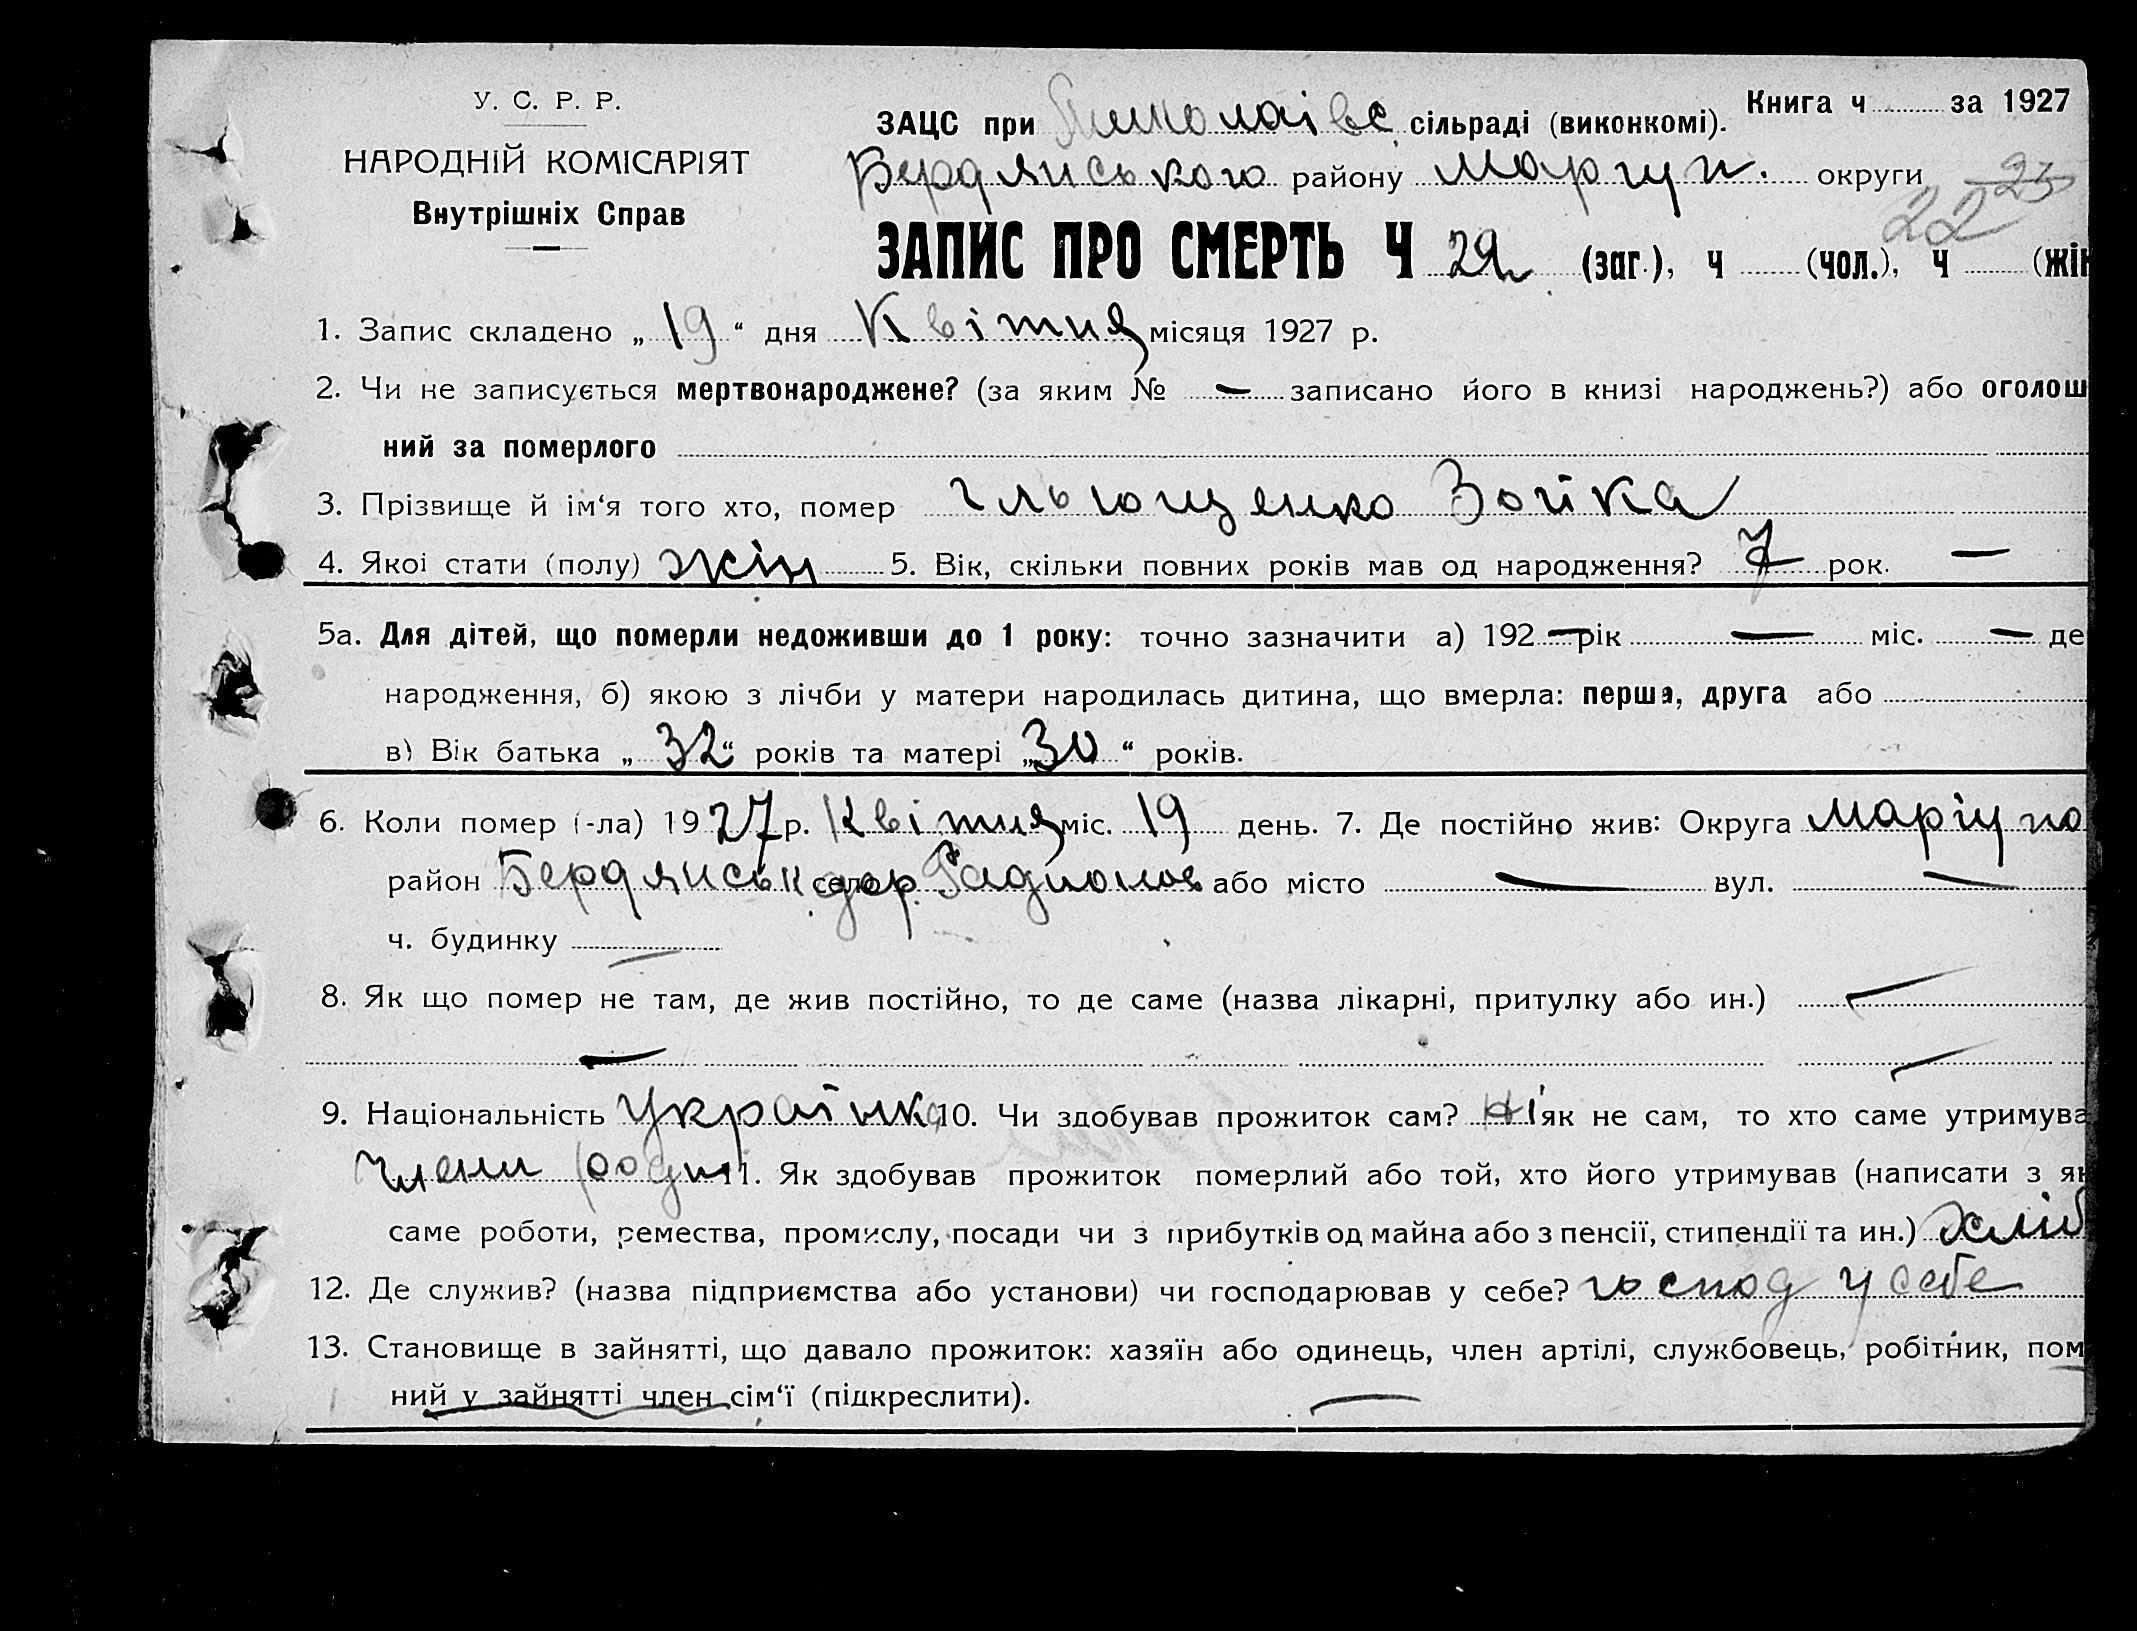 У. С. Р. Р.
НАРОДНІЙ КОМІСАРІЯТ
Внутрішніх Справ
Книга ч за 1927
ЗАЦС при Миколаівс сільраді (виконкомі).
Бердянського району Маріуп. округи
23
22
ЗАПИС ПРО СМЕРТЬ Ч 22 (заг.), ч (чол.), ч (жін
1. Запис складено „19“ дня Квітня місяця 1927 р.
2. Чи не записується мертвонароджене? (за яким № — записано його в книзі народжень?) або оголош
ний за померлого
3. Прізвище й ім‘я того хто, помер Ільющенко Зойка
4. Якоі стати (полу) жін 5. Вік, скільки повних років мав од народження? 7 рок. —
5а. Для дітей, що померли недоживши до 1 року: точно зазначити а) 192 — рік — міс. — де
народження, б) якою з лічби у матери народилась дитина, що вмерла: перша, друга або
в) Вік батька „32“ років та матері „30“ років.
6. Коли помер (-ла) 1927 р. Квітня міс. 19 день. 7. Де постійно жив: Округа Маріупо
район Бердянськ село або місто — вул. —
ч. будинку —
8. Як що помер не там, де жив постійно, то де саме (назва лікарні, притулку або ин.) —
— —
9. Національність Українка 10. Чи здобував прожиток сам? Ні як не сам, то хто саме утримува
члени роди 11. Як здобував прожиток померлий або той, хто його утримував (написати з як
саме роботи, ремества, промислу, посади чи з прибутків од майна або з пенсії, стипендії та ин.) хліб
12. Де служив? (назва підприємства або установи) чи господарював у себе? господ у себе
13. Становище в зайнятті, що давало прожиток: хазяїн або одинець, член артілі, службовець, робітник, пом
ний у зайнятті член сім‘ї (підкреслити). —